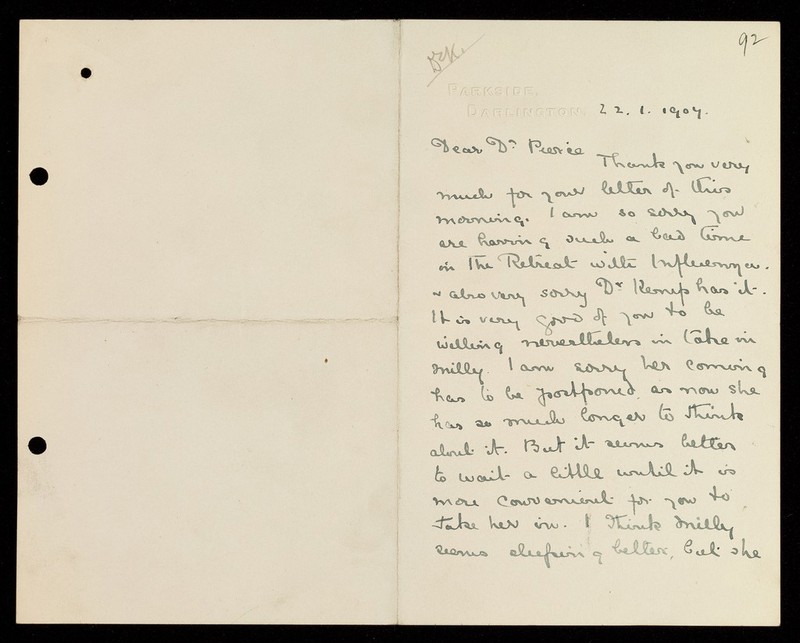 92
PARKSIDE,
DARLINGTON. 22. 1. 1907.
Dear Dr Pierce
Thank you very
much for your letter of this
morning. I am so sorry you
are having such a bad time
in The Retreat with Influenza.
& also very sorry Dr Kemp has it.
It is very good of you to be
willing nevertheless in take in
Milly. I am sorry her coming
has to be postponed, as now she
has so much longer to think
about it. But it seems better
to wait a little until it is
more convenient for you to
take her in. I think Milly
seems sleeping better, but she